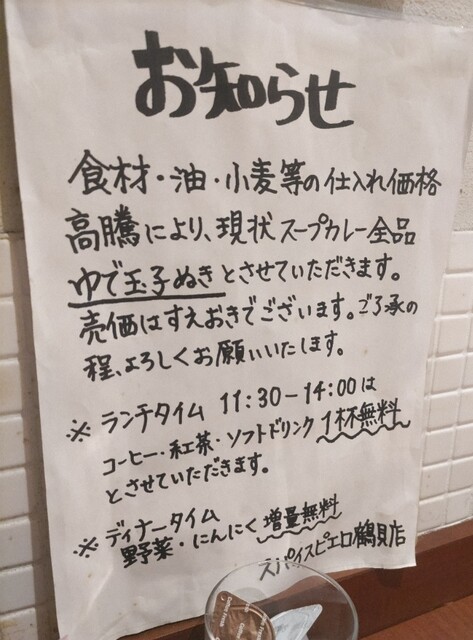 お知らせ
食材・油・小麦等の仕入れ価格
高騰により、現状スープカレー全品
ゆで玉子ぬきとさせていただきます。
売価はすえおきでございます。ご了承の
程、よろしくお願いいたします。
※ ランチタイム 11:30-14:00は
コーヒー・紅茶・ソフトドリンク1杯無料
とさせていただきます。
※ ディナータイム
野菜・にんにく増量無料
スパイスピエロ鶴見店